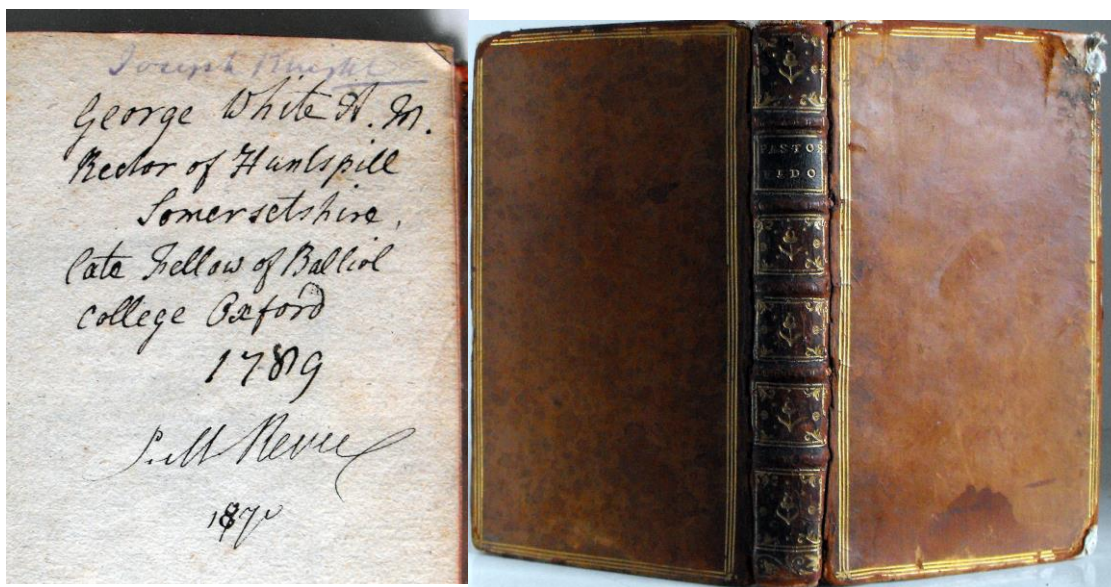 Joseph Knight
George White A. M.
Rector of Huntspill
Somersetshire,
late Fellow of Balliol
College Oxford
1789
PASTOR
FIDO